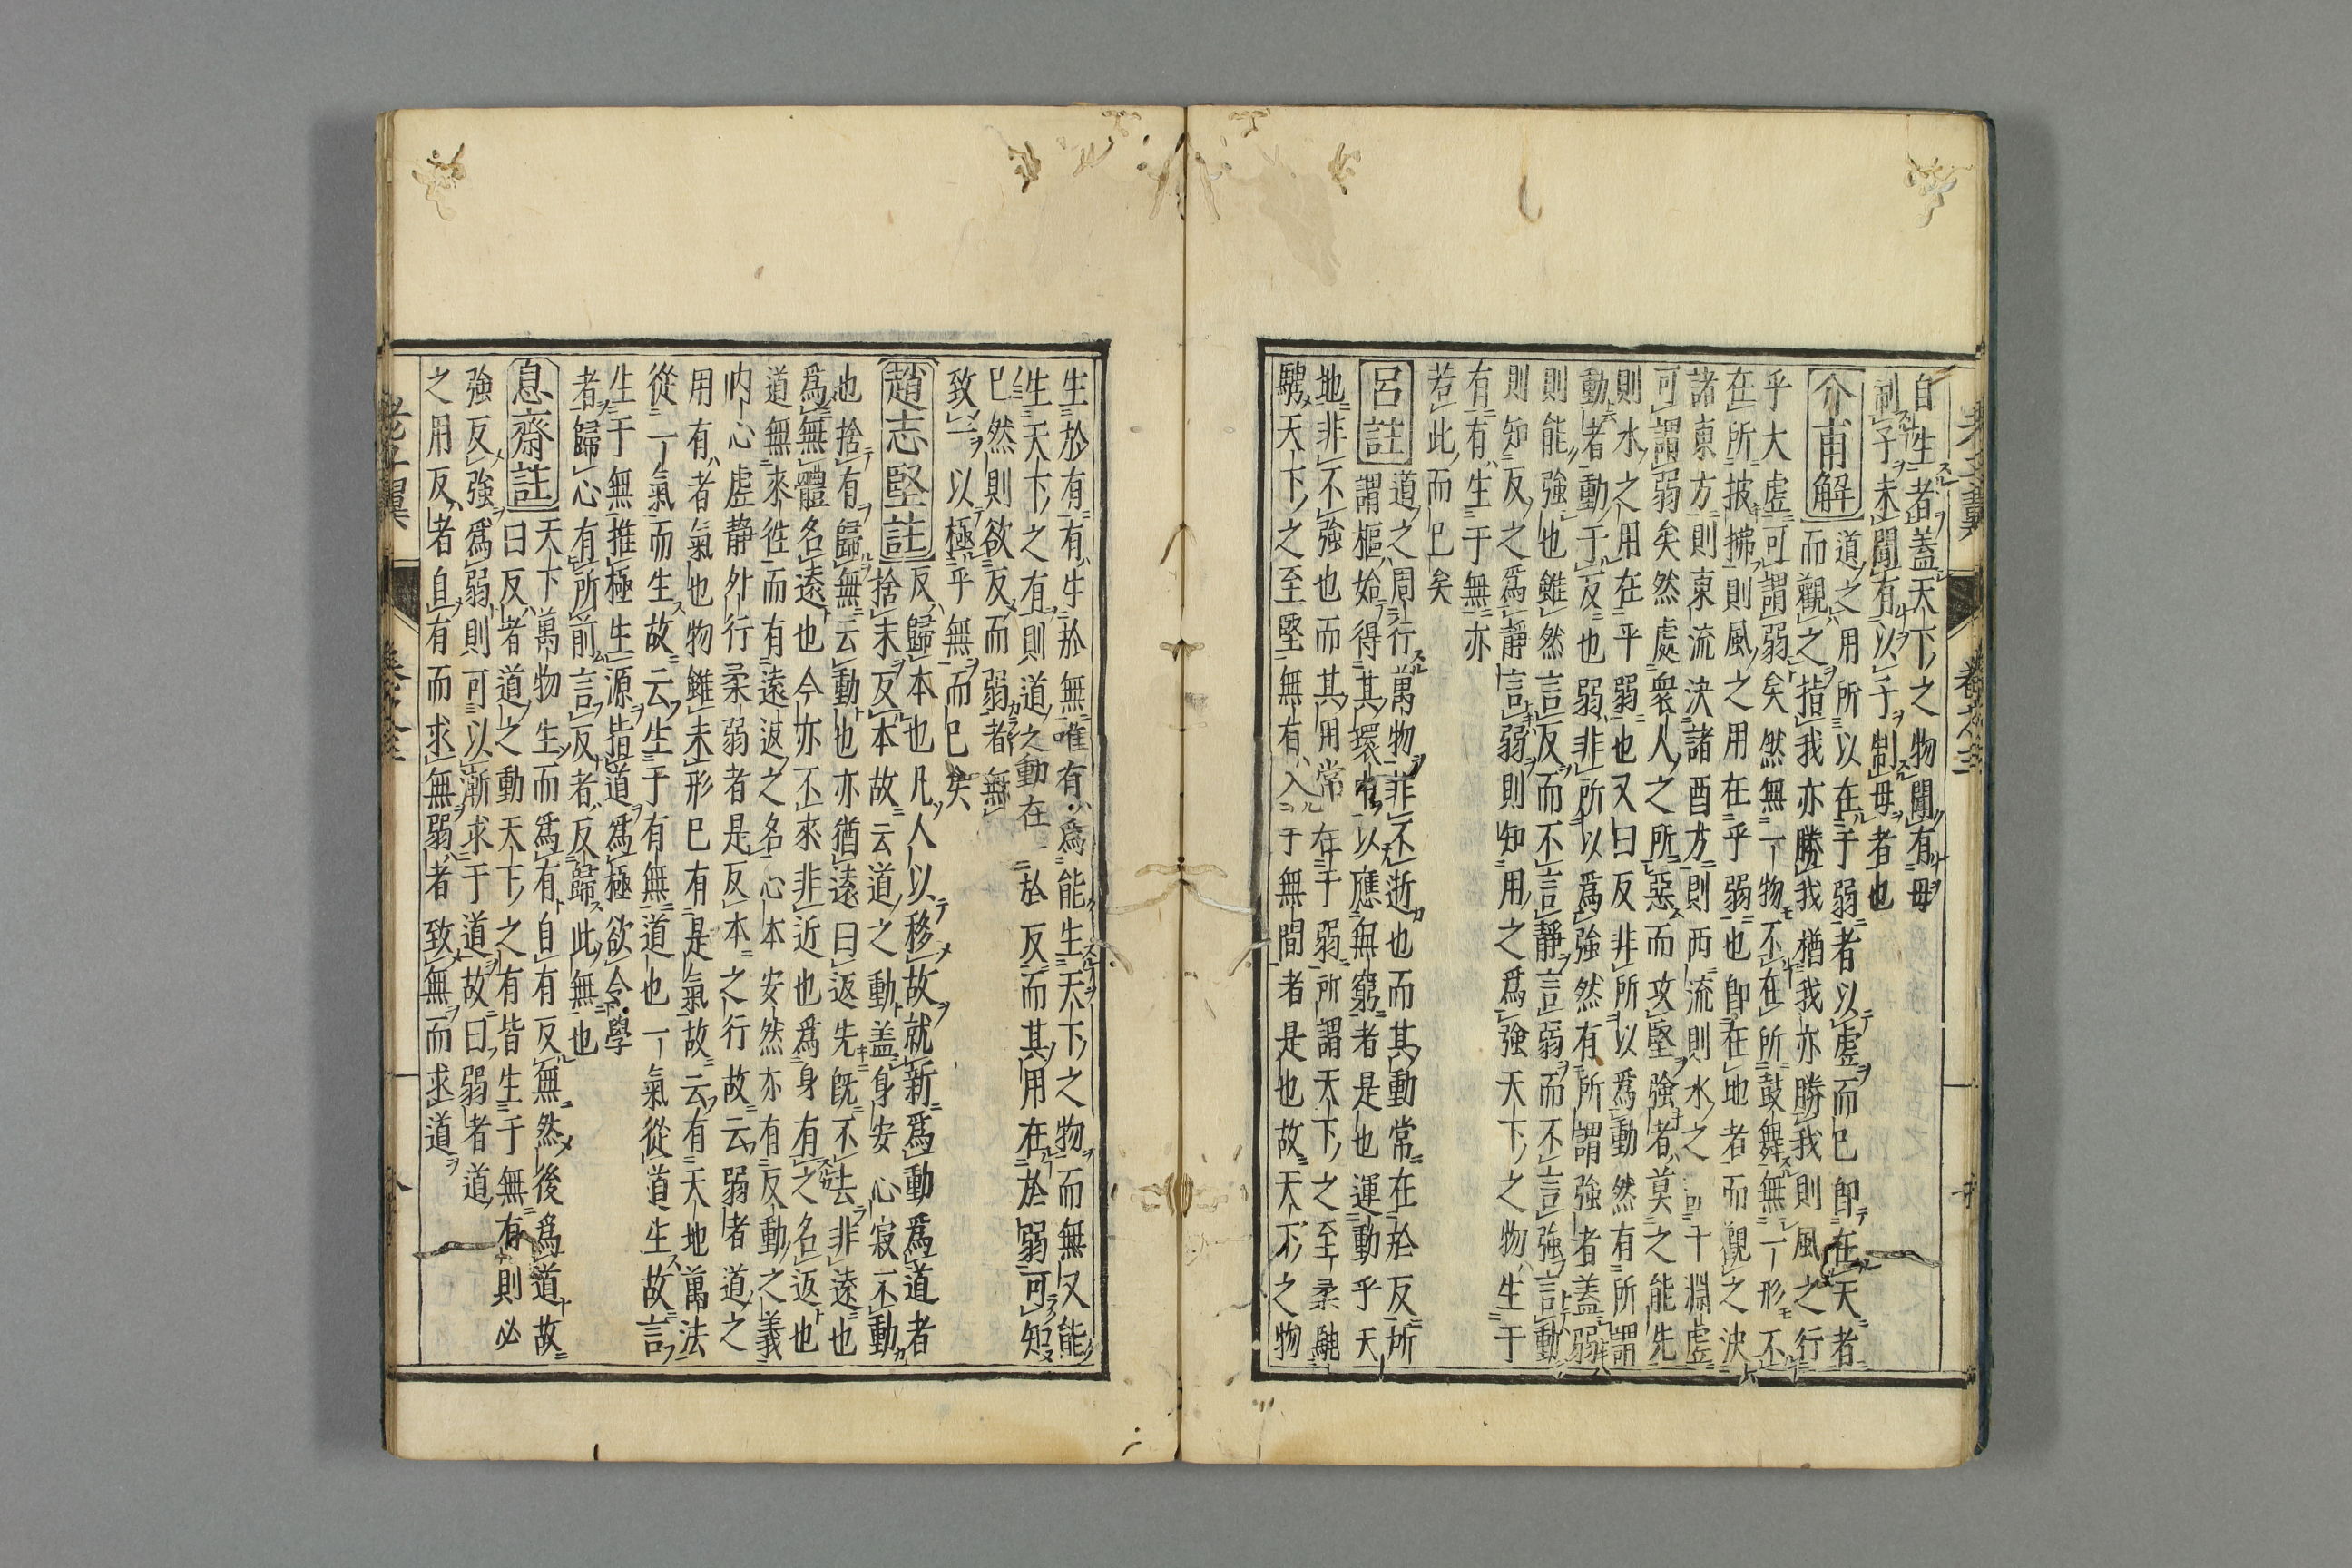 自生者蓋天下之物聞有母
制子未聞有以子制母者也
介甫解
道之用所以在于弱者以虛而已即在天者
而觀之指我亦勝我䲡我亦勝我則風之行
乎大虛可謂弱矣然無一物不在所鼓舞無一形不
在所披拂則風之用在乎弱也即在地者而觀之決
諸東方則東流決諸酉方則西流則水之 于淵虛
可謂弱矣然處衆人之所惡而攻堅強者莫之能先
則水之用在乎弱也又曰反非所以爲動然有所謂
動者動于反也弱非所以爲強然有所謂強者蓋弱
則能強也雖然言反而不言靜言弱而不言強言動
則知反之爲靜言弱則知用之爲強天下之物生于
有有生于無亦
若此而已矣
呂註
道之周行萬物非不逝也而其動常在於反所
謂樞始得其環中以應無窮者是也運動乎天
地非不強也而其用常在于弱所謂天下之至柔馳
騁天下之至堅無有入于無間者是也故天下之物
生於有有生於無唯有爲能生天下之物而無又能
生天下之有則道之動在於反而其用在於弱可知
已然則欲反而弱者無
致一以極乎無而已矣
趙志堅註
反歸本也凡人以移故就新爲動爲道者
捨末反本故云道之動蓋身安心寂不動
也捨有歸無云動也亦猶遠曰返先旣不去非遠也
爲無體名遠也今亦不來非近也爲身有之名返也
道無來徃而有遠返之名心本安然亦有反動之義
内心虛静外行柔弱者是反本之行故云弱者道之
用有者氣也物雖未形已有是氣故云有天地萬法
從一氣而生故云生于有無道也一氣從道生故言
生于無推極生源指道爲極欲令學
者歸心有所前言反者反歸此無也
息齋註
天下萬物生而爲有自有反無然後爲道故
曰反者道之動天下之有皆生于無有則必
強反強爲弱則可以漸求于道故曰弱者道
之用反者自有而求無弱者致無而求道
老子翼
卷之三